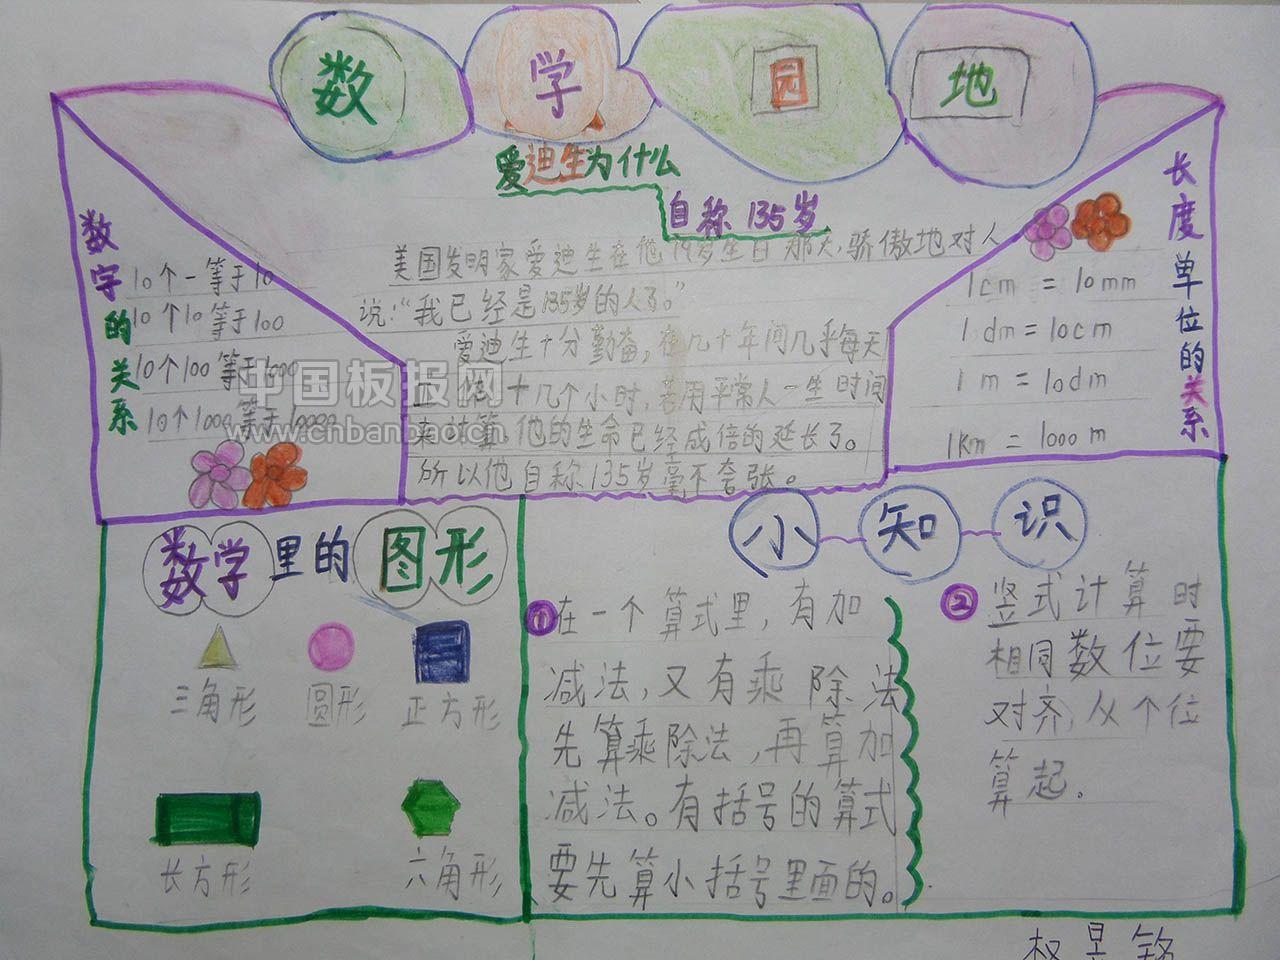 数学园地
爱迪生为什么
自称135岁
美国发明家爱迪生在他79岁生日那天,骄傲地对人
说:“我已经是135岁的人了。”
爱迪生十分勤奋,在几十年间几乎每天
工作十几个小时,若用平常人一生时间
来计算,他的生命已经成倍的延长了。
所以他自称135岁毫不夸张。
数字的关系
10个一等于10
10个10等于100
10个100等于1000
10个1000等于10000
长度单位的关系
1cm = 10mm
1dm = 10cm
1m = 10dm
1Km = 1000m
中国板报网
www.cnbanbao.cn
数学里的图形
三角形 圆形 正方形
长方形 六角形
小知识
①在一个算式里,有加
减法,又有乘除法
先算乘除法,再算加
减法。有括号的算式
要先算小括号里面的。
②竖式计算时
相同数位要
对齐,从个位
算起.
权昱铭